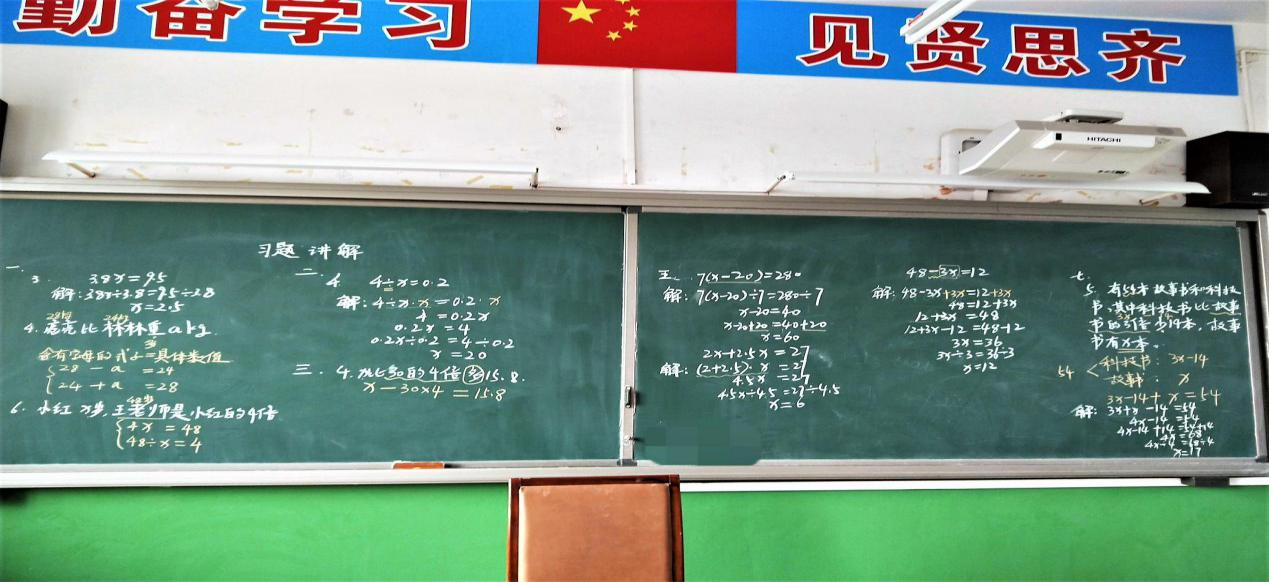 勤奋学习
见贤思齐
HITACHI
习题讲解
一.
3. 3.8x=9.5
解:3.8x÷3.8=9.5÷3.8
x=2.5
28kg 24kg
4. 虎虎比林林重akg.
含有字母的式子=具体数值
28-a=24
24+a=28
6. 小红x岁,王老师是小红的4倍
4x=48
48÷x=4
二.
4. 4÷x=0.2
解:4÷x·x=0.2·x
4=0.2x
0.2x=4
0.2x÷0.2=4÷0.2
x=20
三. 4. x比30的4倍多15.8.
x-30×4=15.8
五. 7(x-20)=280
解:7(x-20)÷7=280÷7
x-20=40
x-20+20=40+20
x=60
2x+2.5x=27
解:(2+2.5)·x=27
4.5x=27
4.5x÷4.5=27÷4.5
x=6
48-3x=12
解:48-3x+3x=12+3x
48=12+3x
12+3x=48
12+3x-12=48-12
3x=36
3x÷3=36÷3
x=12
七.
5. 有54本故事书和科技
书,其中科技书比故事
书的3倍少14本,故事
书有x本.
54
科技书:3x-14
故事书:x
3x-14+x=54
解:3x+x-14=54
4x-14=54
4x-14+14=54+14
4x=68
4x÷4=68÷4
x=17